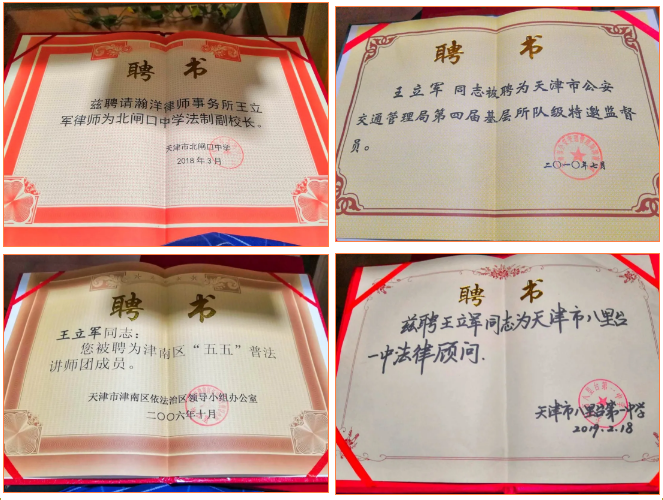 聘 书
兹聘请瀚洋律师事务所王立
军律师为北闸口中学法制副校长。
天津市北闸口中学
2018年3月
聘 书
王立军 同志被聘为天津市公安
交通管理局第四届基层所队级特邀监督
员。
二〇一〇年七月
聘 书
王立军同志：
您被聘为津南区“五五”普法
讲师团成员。
天津市津南区依法治区领导小组办公室
二〇〇六年十月
聘 书
兹聘王立军同志为天津市八里台
一中法律顾问.
天津市八里台第一中学
2017.2.18